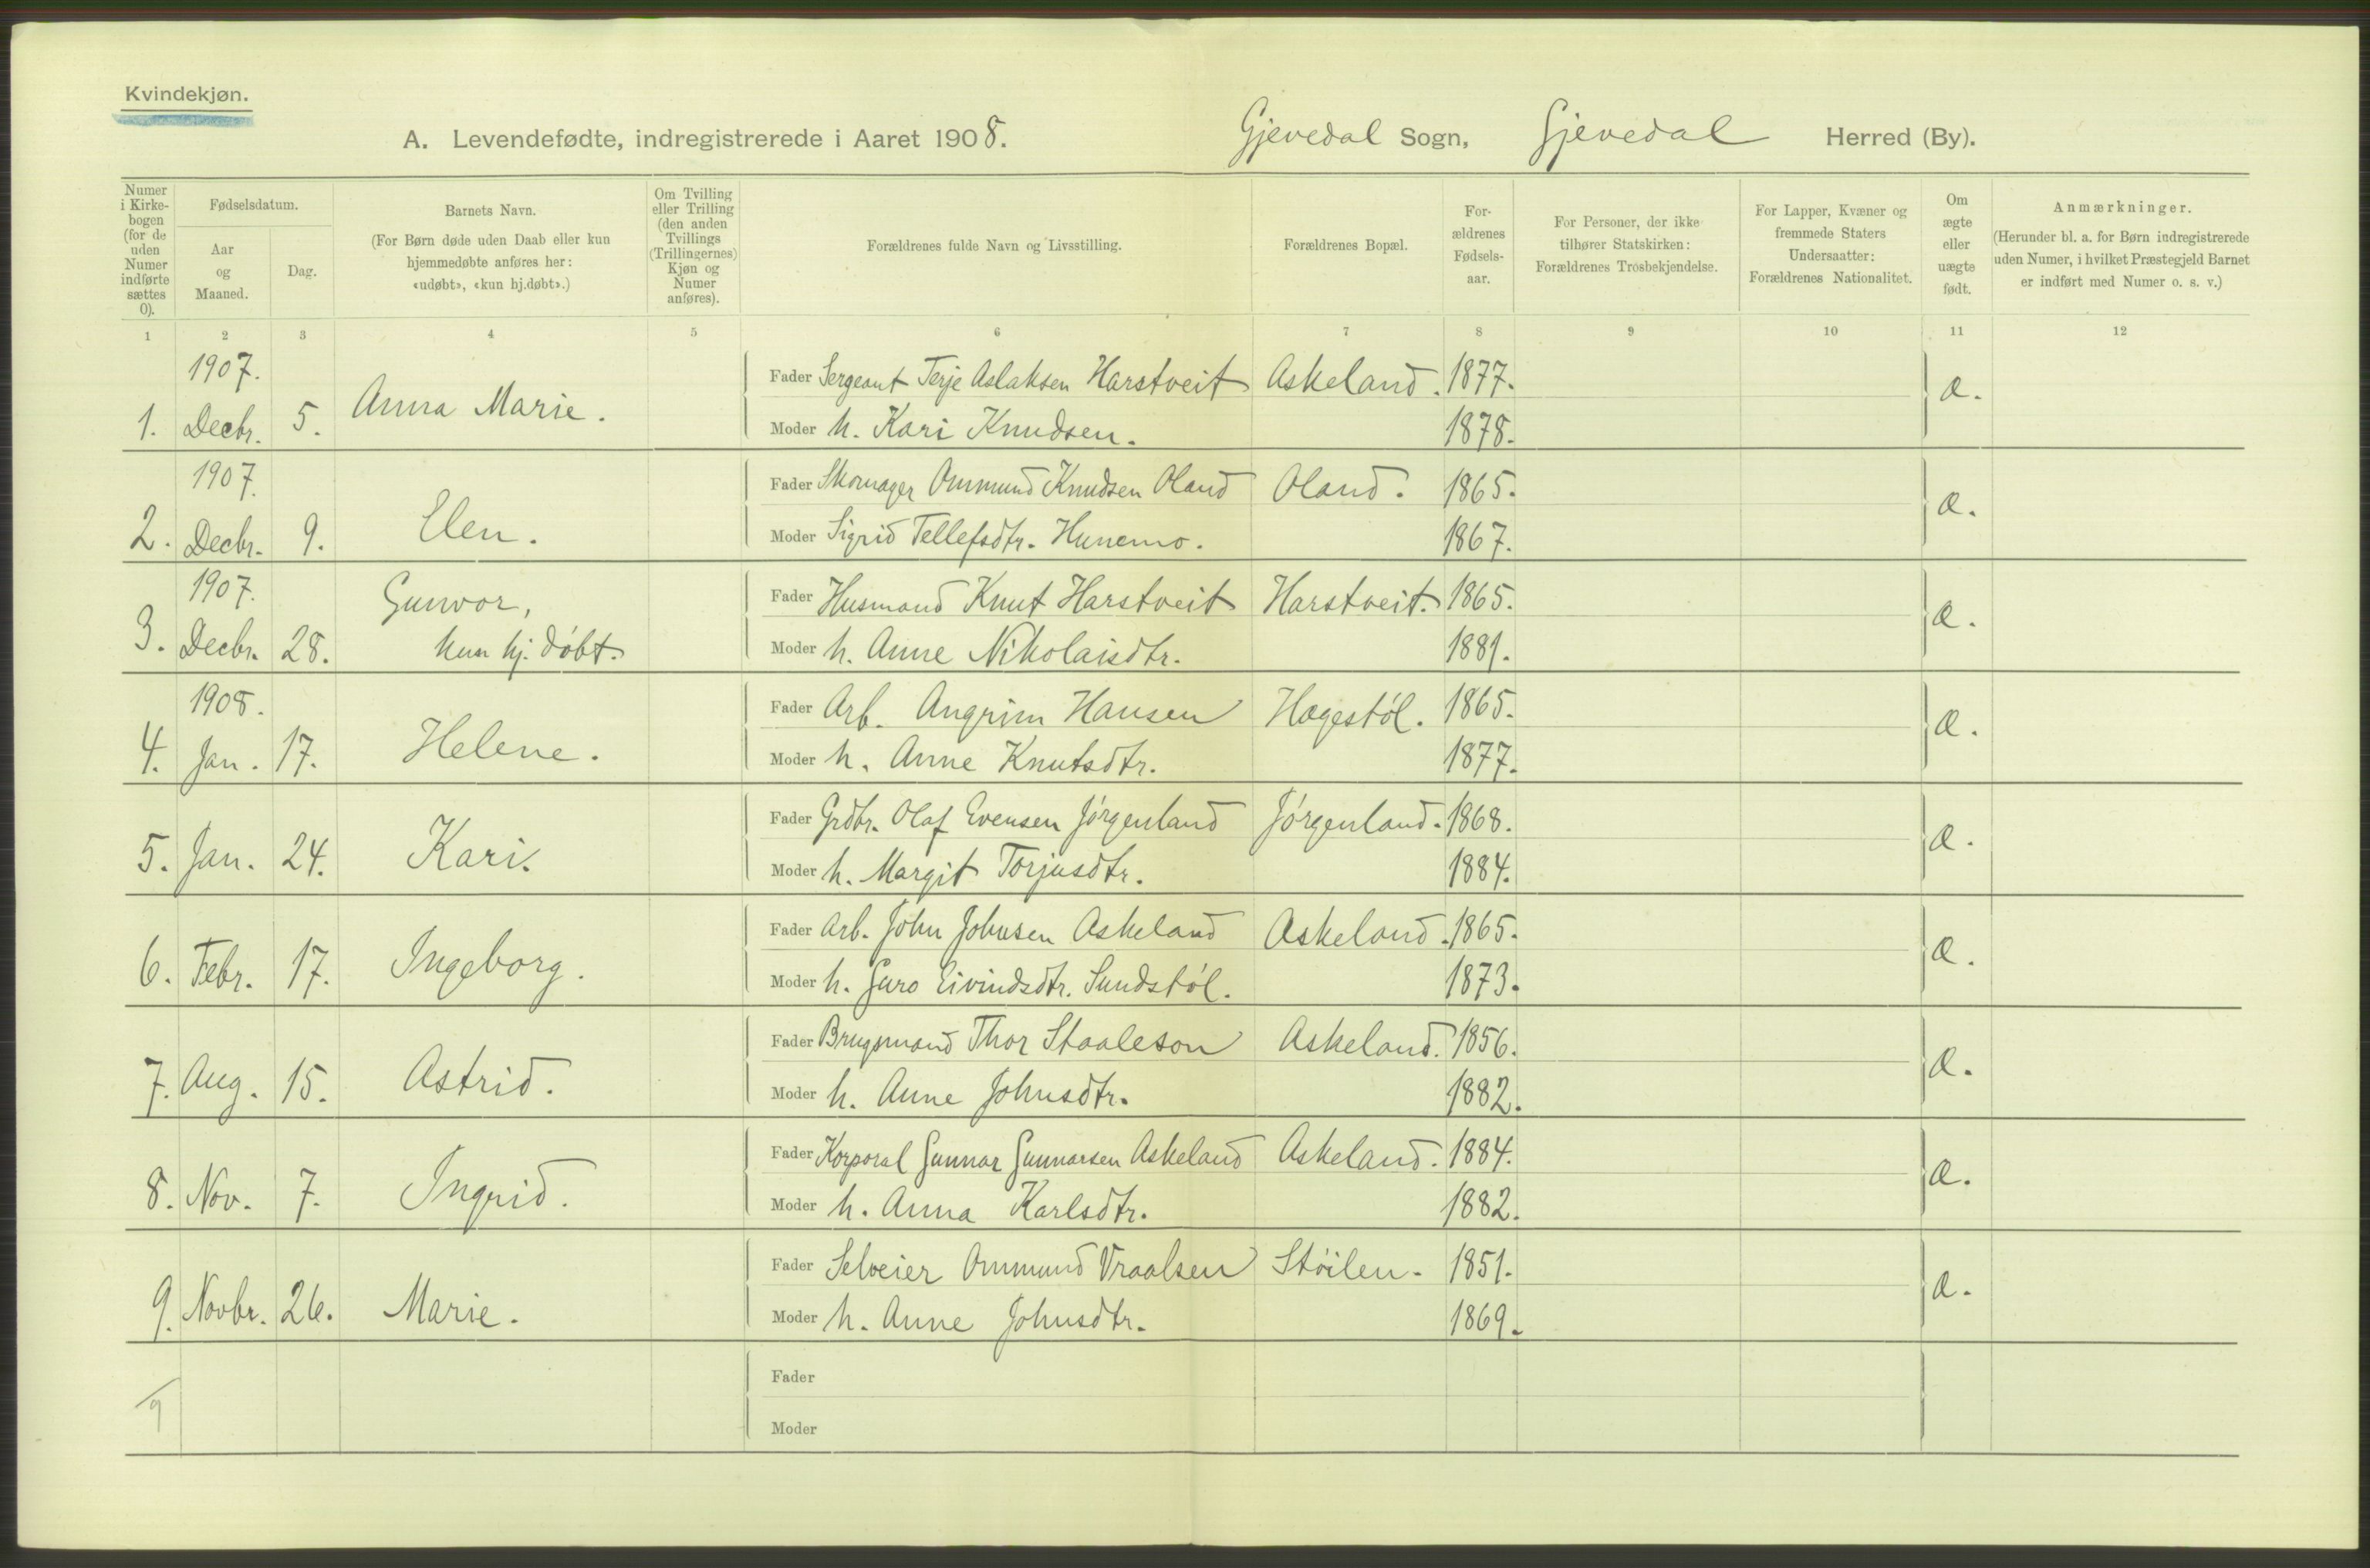 Kvindekjøn.
A. Levendefødte, indregistrerede i Aaret 1908. Gjevedal Sogn, Gjevedal Herred (By).
Numer i Kirkebogen (for de uden Numer indførte sættes 0).
Fødselsdatum.
Aar og Maaned.
Dag.
Barnets Navn.
(For Børn døde uden Daab eller kun hjemmedøbte anføres her: «udøbt», «kun hj.døbt».)
Om Tvilling eller Trilling (den anden Tvillings (Trillingernes) Kjøn og Numer anføres).
Forældrenes fulde Navn og Livsstilling.
Forældrenes Bopæl.
Forældrenes Fødselsaar.
For Personer, der ikke tilhører Statskirken: Forældrenes Trosbekjendelse.
For Lapper, Kvæner og fremmede Staters Undersaatter: Forældrenes Nationalitet.
Om ægte eller uægte født.
Anmærkninger.
(Herunder bl. a. for Børn indregistrerede uden Numer, i hvilket Præstegjeld Barnet er indført med Numer o. s. v.)
1 2 3 4 5 6 7 8 9 10 11 12
1907.
Fader Sergeant Terje Aslaksen Harstveit Askeland. 1877.
1. Decbr. 5. Anna Marie. æ.
Moder h. Kari Knudsen. 1878.
1907.
Fader Skomager Ommund Knudsen Oland Oland. 1865.
2. Decbr. 9. Elen. æ.
Moder Sigrid Tellefsdtr. Hunemo. 1867.
1907. Gunvor,
Fader Husmand Knut Harstveit Harstveit. 1865.
3. Decbr. 28. kun hj. døbt. æ.
Moder h. Anne Nikolaisdtr. 1881.
1908.
Fader Arb. Angrim Hansen Hægestøl. 1865.
4. Jan. 17. Helene. æ.
Moder h. Anne Knutsdtr. 1877.
Fader Grdbr. Olaf Evensen Jørgenland Jørgenland. 1868.
5. Jan. 24. Kari. æ.
Moder h. Margit Torjusdtr. 1884.
Fader Arb. John Johnsen Askeland Askeland. 1865.
6. Febr. 17. Ingeborg. æ.
Moder h. Guro Eivindsdtr. Sundstøl. 1873.
Fader Brugsmand Thor Staaleson Askeland. 1856.
7. Aug. 15. Astrid. æ.
Moder h. Anne Johnsdtr. 1882.
Fader Korporal Gunnar Gunnarsen Askeland Askeland. 1884.
8. Nov. 7. Ingrid. æ.
Moder h. Anna Karlsdtr. 1882.
Fader Selveier Ommund Vraalsen Støilen. 1851.
9. Novbr. 26. Marie. æ.
Moder h. Anne Johnsdtr. 1869.
Fader
9
Moder